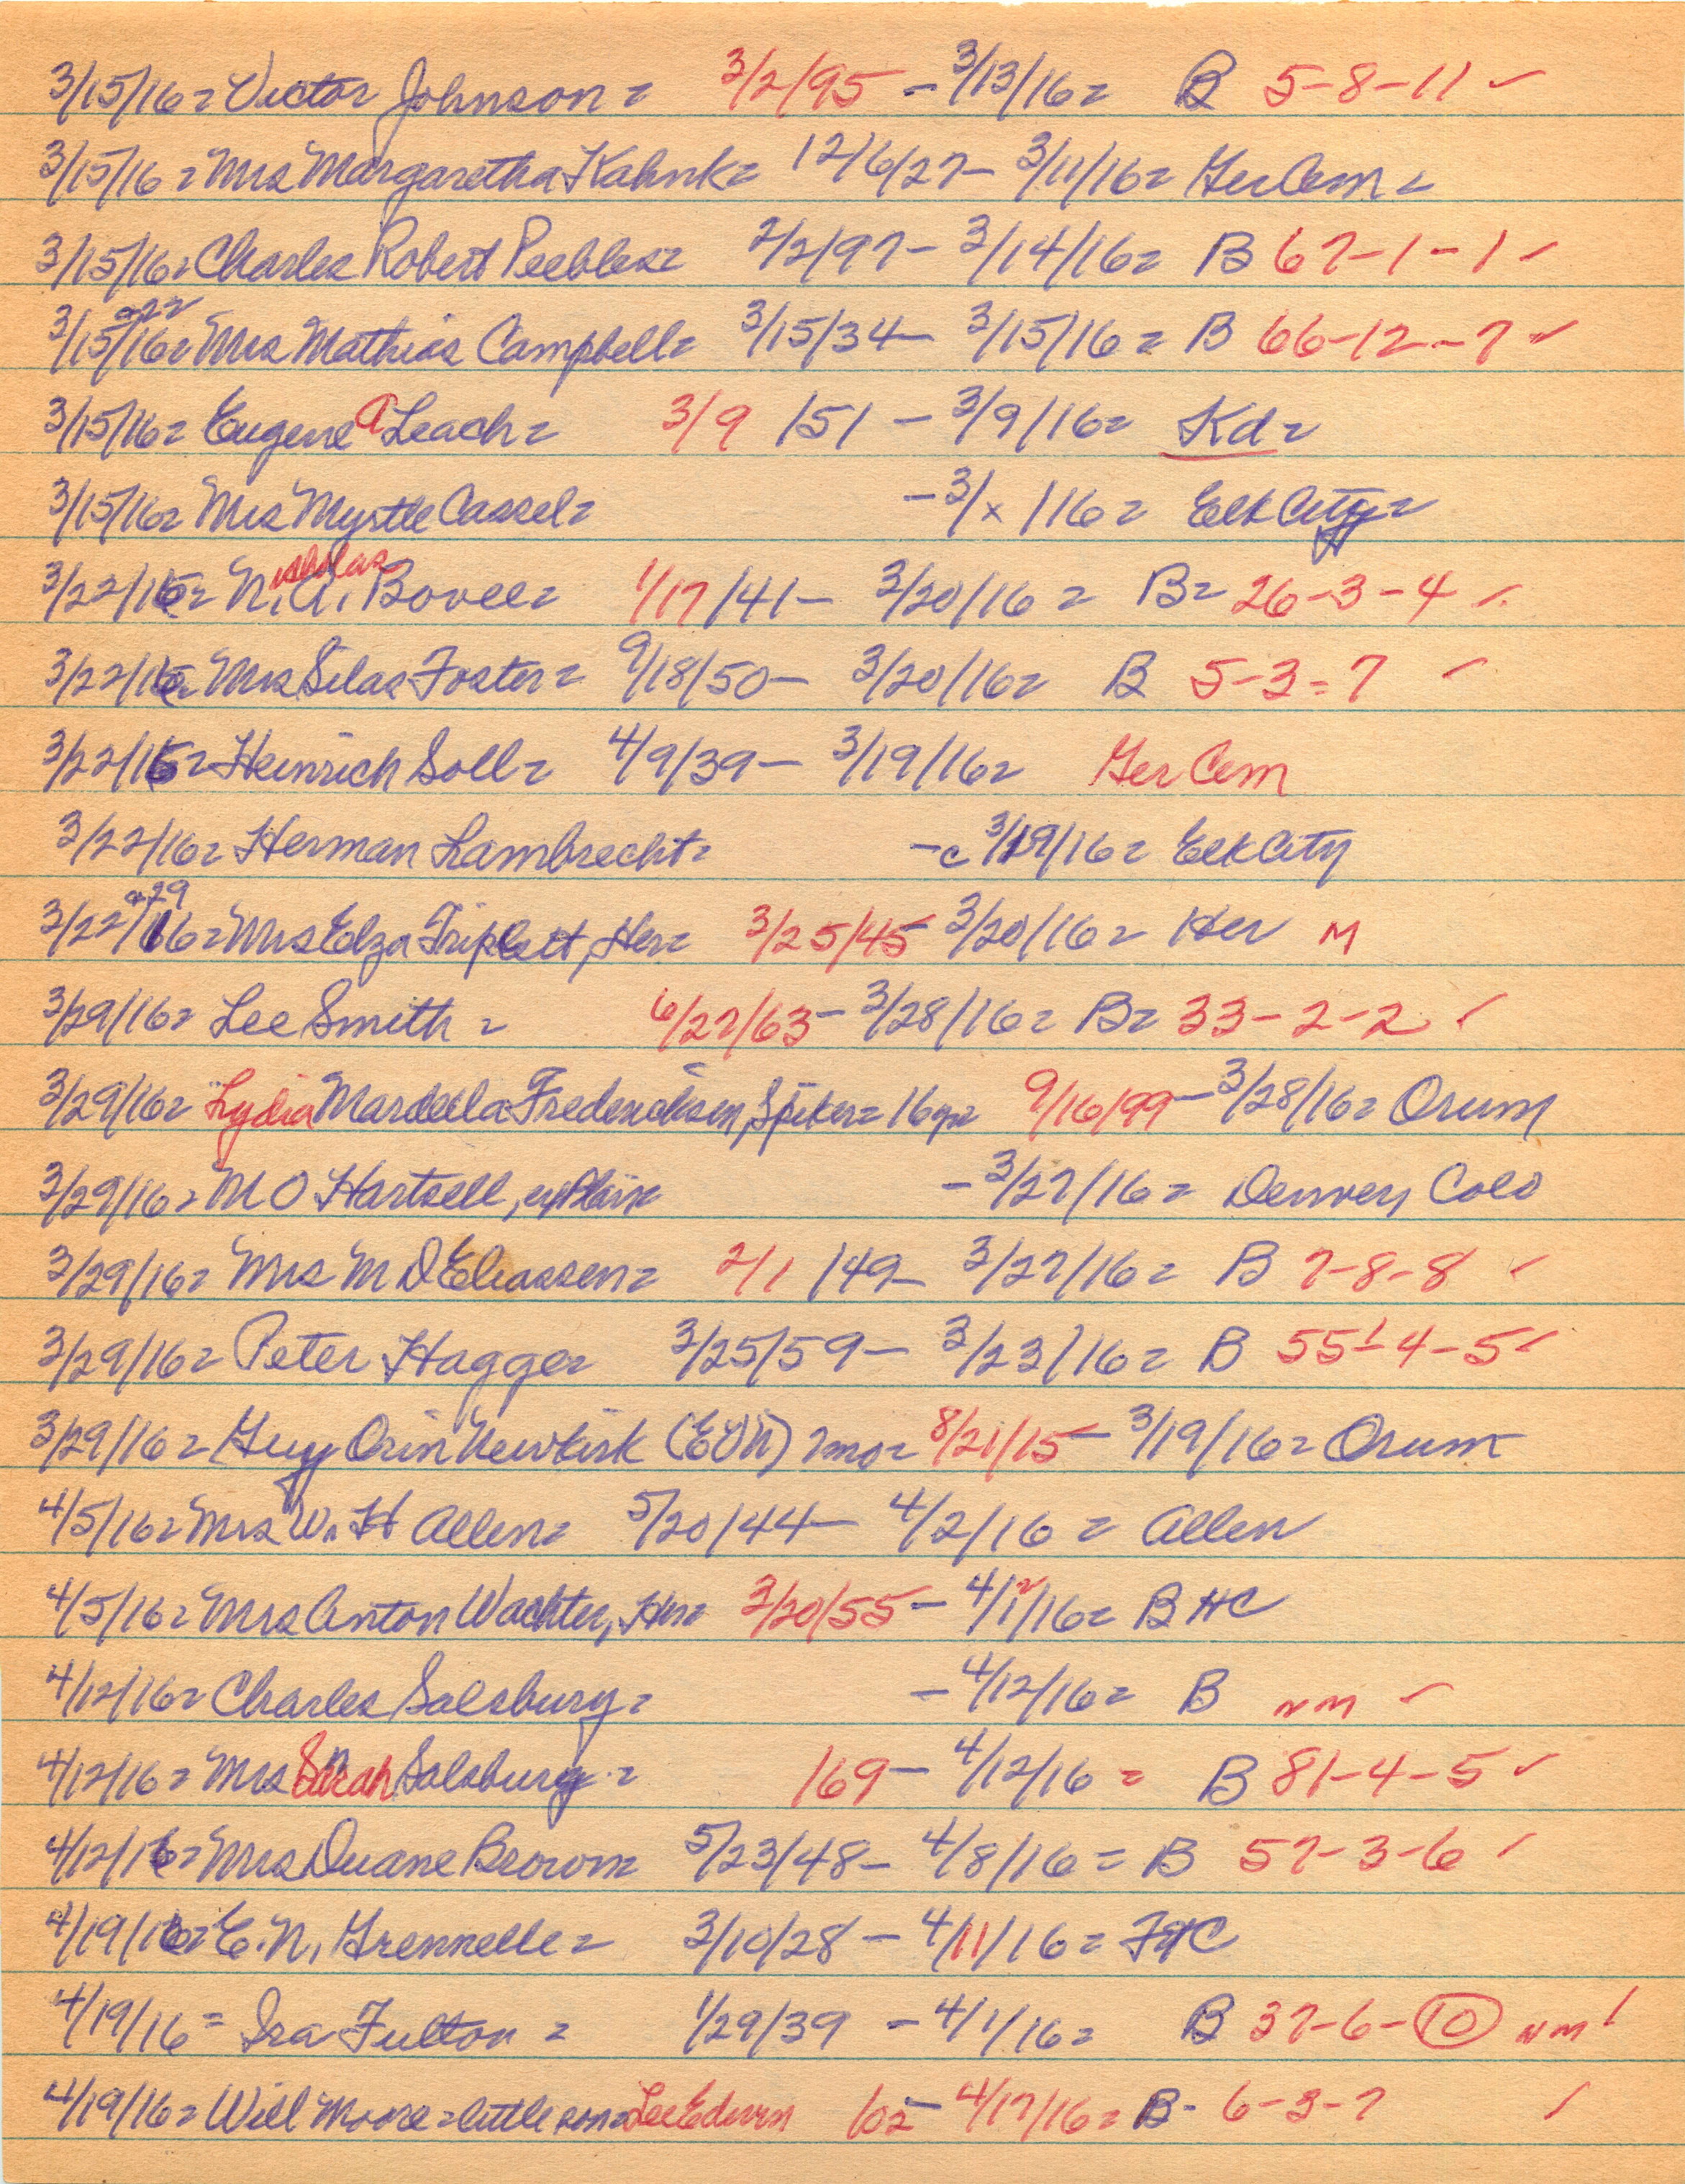 3/15/16= Victor Johnson= 3/2/95 - 3/13/16= B 5-8-11 ✓
3/15/16= Mrs Margaretha Kahnk= 12/6/27- 3/11/16= Ger Cem=
3/15/16= Charles Robert Peebles= 2/2/97- 3/14/16= B 67-1-1 ✓
3/15/16= a22 Mrs Mathias Campbell= 3/15/34- 3/15/16= B 66-12-7 ✓
3/15/16= Eugene A Leach= 3/9/51 - 3/9/16= Kd=
3/15/16= Mrs Myrtle Cassel= -3/x/16= Elk City=
3/22/16= N.A. icholas Bovee= 1/17/41- 3/20/16= B= 26-3-4 ✓
3/22/16= Mrs Silas Foster= 9/18/50- 3/20/16= B 5-3-7 ✓
3/22/16= Heinrich Soll= 4/9/39- 3/19/16= Ger Cem
3/22/16= Herman Lambrecht= -c 3/19/16= Elk City
3/22/16= a29 Mrs Elza Triplett, Her= 3/25/45 3/20/16= Her M
3/29/16= Lee Smith= 6/27/63- 3/28/16= B= 33-2-2 ✓
3/29/16= Lydia Mardella Fredericksen, Spiker= 16yr 9/16/99- 3/28/16= Orum
3/29/16= M O Hartsell, -3/27/16= Denver, Colo
3/29/16= Mrs M D Eliassen= 2/1/49- 3/27/16= B 7-8-8 ✓
3/29/16= Peter Hagge= 3/25/59- 3/23/16= B 55-4-5 ✓
3/29/16= Guy Orin Newkirk (EON) 7mo= 8/21/15- 3/19/16= Orum
4/5/16= Mrs W. H Allen= 5/20/44- 4/2/16= Allen
4/5/16= Mrs Anton Wachter, Her= 3/20/55- 4/1/16= B HC
4/12/16= Charles Salsbury= -4/12/16= B nm ✓
4/12/16= Mrs Sarah Salsbury= /69- 4/12/16= B 81-4-5 ✓
4/12/16= Mrs Duane Brown= 5/23/48- 4/8/16= B 57-3-6 ✓
4/19/16= E. N. Grennelle= 3/10/28- 4/11/16= FtC
4/19/16= Ira Fulton= 1/29/39 - 4/1/16= B 37-6-10 nm ✓
4/19/16= Will Moore= little son= Lee Edwin /02- 4/17/16= B- 6-3-7 ✓